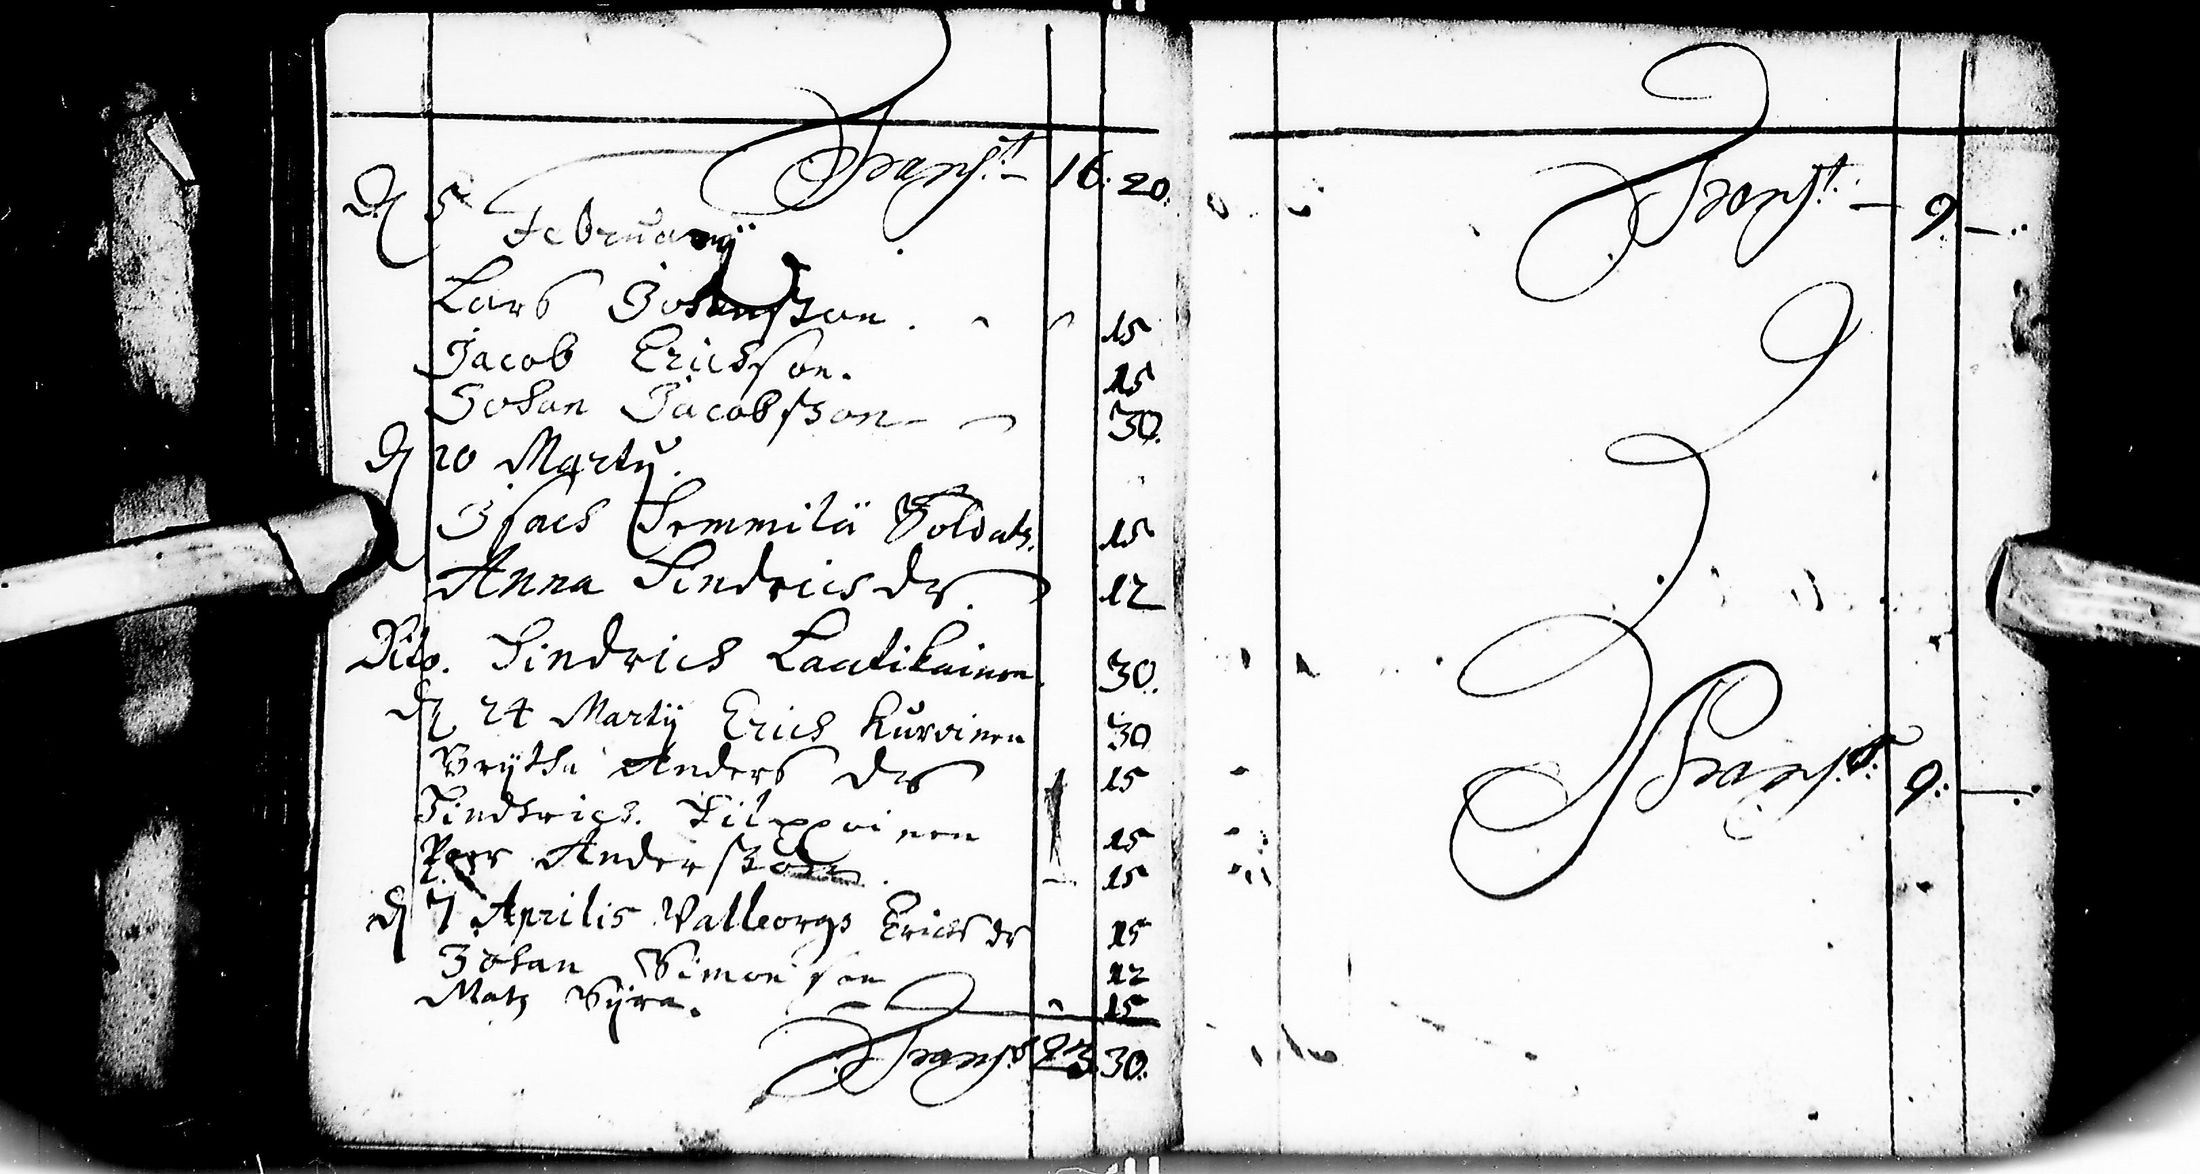 Transp:t — 16: 20:
D 5 Februarij
Lars Johansson . 15
Jacob Ericsson. 15
Johan Jacobsson — 30.
D 20 Martij.
Isacs Hemmilä Soldats. 15
Anna Hindrics dr. 12
Dito. Hindrich Lautikainen. 30.
D 24 Martij Erich Kurvinen 30
Brijtha Anders dr 15
Hindrics. Filppoinen 15
Peer Andersson 15
D 7 Aprilis Valleorgs Erics dr 15
Johan Simonson 12
Mats Sijra. 15
Transp:t 23 30:
Transp:t — 9. — ..
Transp:t 9: — :